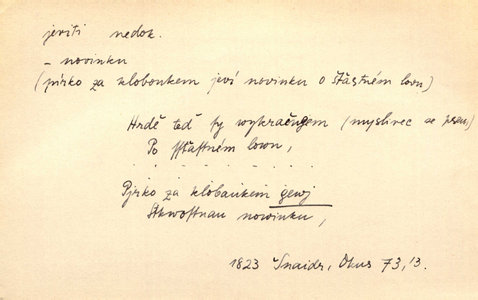 jeviti nedok.
- novinku
(pírko za kloboukem jeví novinku o šťastném lovu)
Hrdě teď ty wykračugem (myslivec se psem)
Po sstastném lowu,
. . . . . . . .
Pjrko za klobaukem gewj
Skwostnau nowinku,
1823 Šnaidr, Okus 73,13.